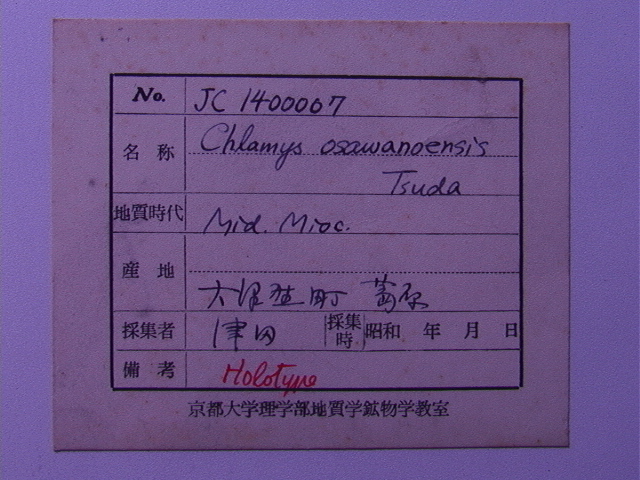 No. JC 1400007
名称 Chlamys osawanoensis
Tsuda
地質時代 Mid. Mioc.
産地
大沢野町 葛原
採集者 津田 採集時 昭和 年 月 日
備考 Holotype
京都大学理学部地質学鉱物学教室